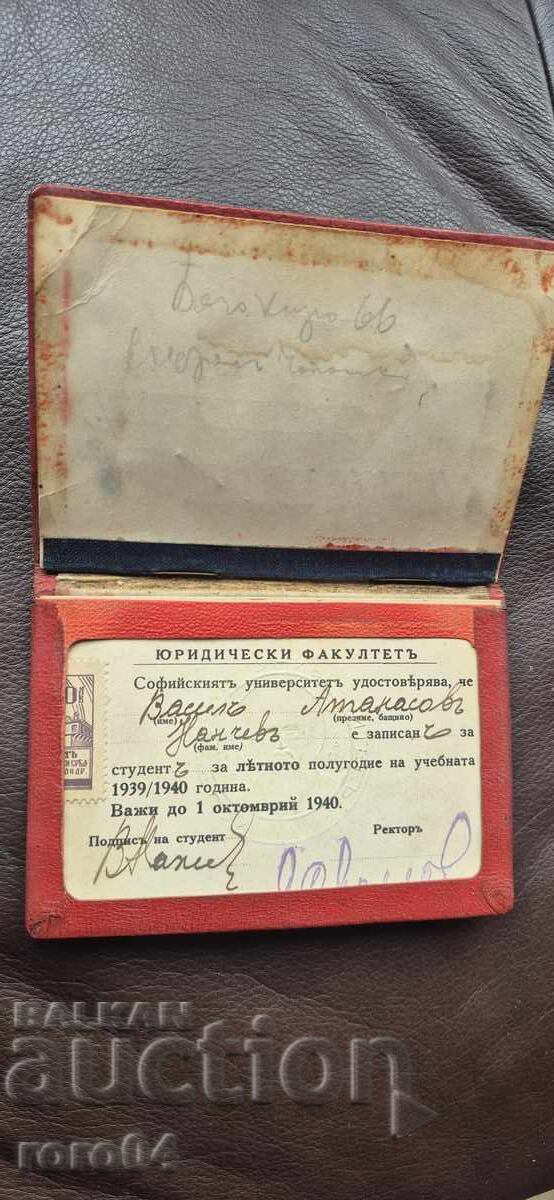 66
ЮРИДИЧЕСКИ ФАКУЛТЕТЪ
Софийскиятъ университетъ удостоверява, че
Василъ Атанасовъ
(име) (презиме, бащино)
Нанчевъ е записанъ за
(фам. име)
студентъ за лѣтното полугодие на учебната
1939/1940 година.
Важи до 1 октомврий 1940.
Подписъ на студент Ректоръ
BALKAN
auction
roro04